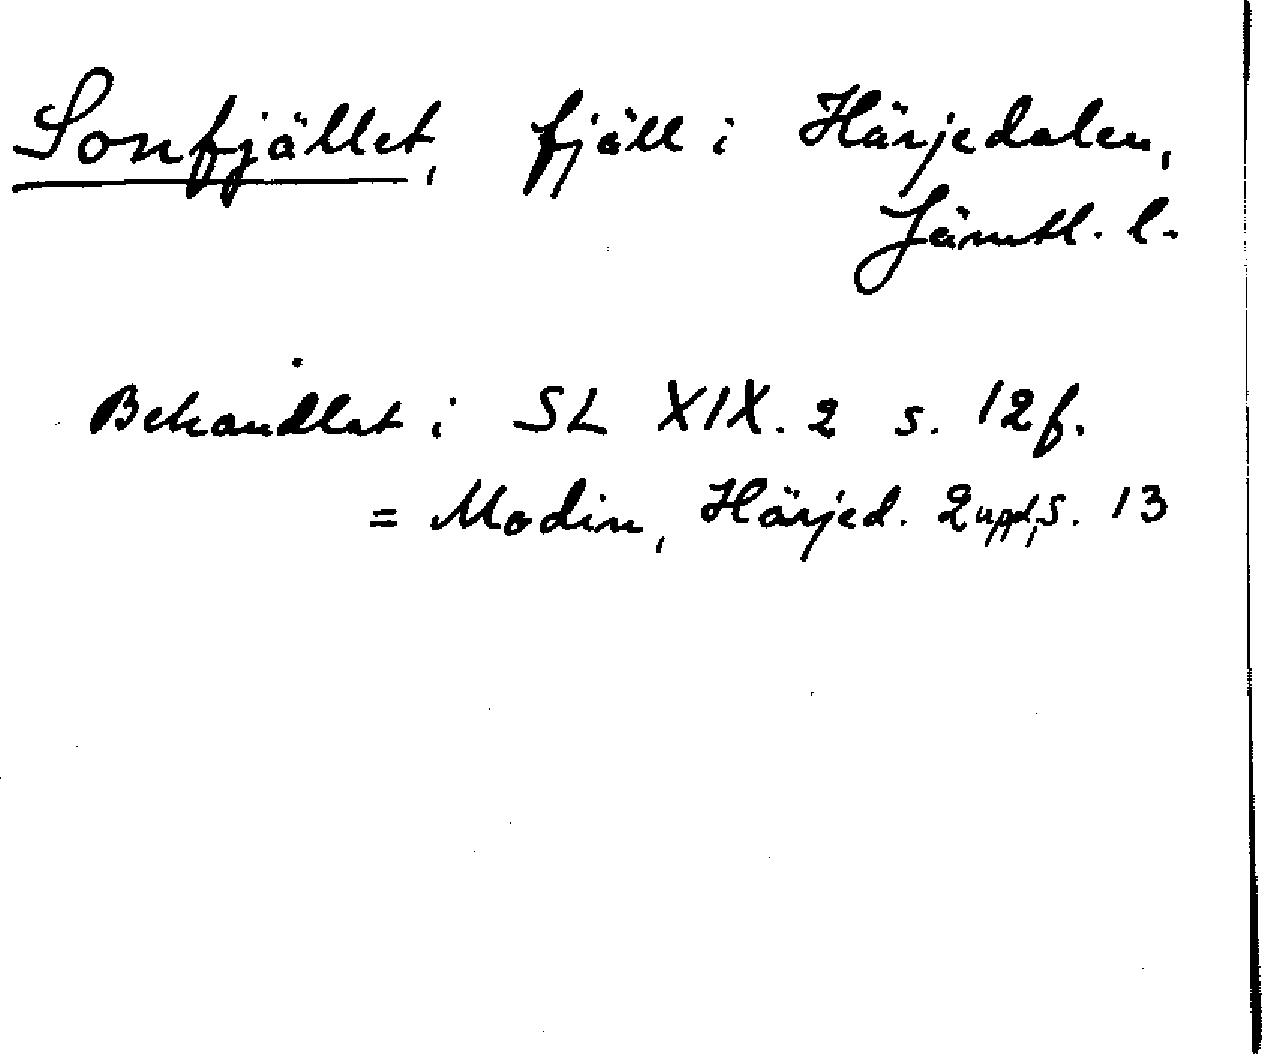 Sonfjället, fjäll i Härjedalen,
Jämtl. l.
Behandlat i SL XIX. 2 s. 12f.
= Modin, Härjed. 2 uppl, s. 13